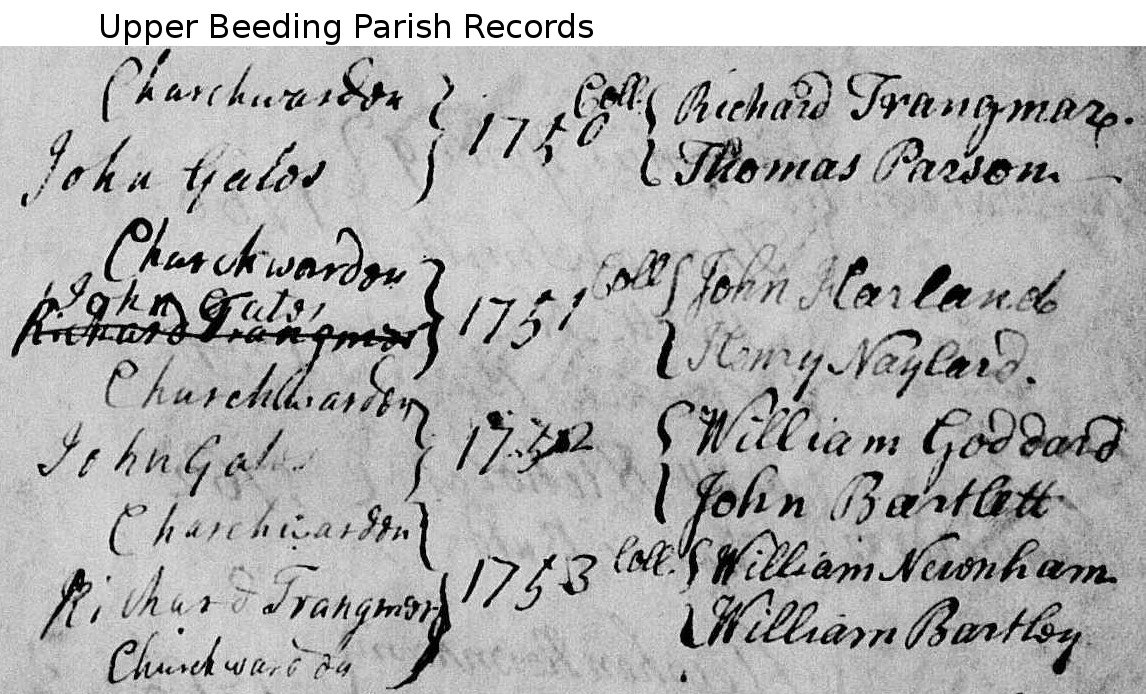 Upper Beeding Parish Records
Churchwarden
John Gates
1750 Coll. Richard Trangmare.
Thomas Parson.
Churchwarden
John Gates
Richard Trangmor
1751 Coll John Harland
Henry Naylard.
Churchwarden
John Gates
1752 William Goddard
John Bartlett
Churchwarden
Richard Trangmor
1753 Coll. William Newnham
William Bartley
Churchwarden